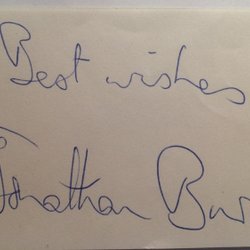 Best wishes
Jonathan